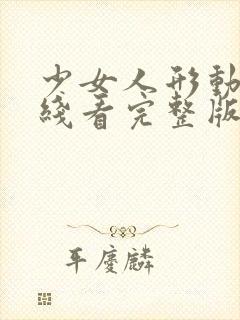 少女人形動
綫看完整版
平慶麟